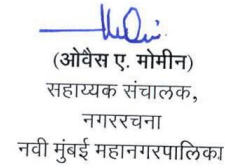 (ओवैस ए. मोमीन)
सहाय्यक संचालक,
नगररचना
नवी मुंबई महानगरपालिका